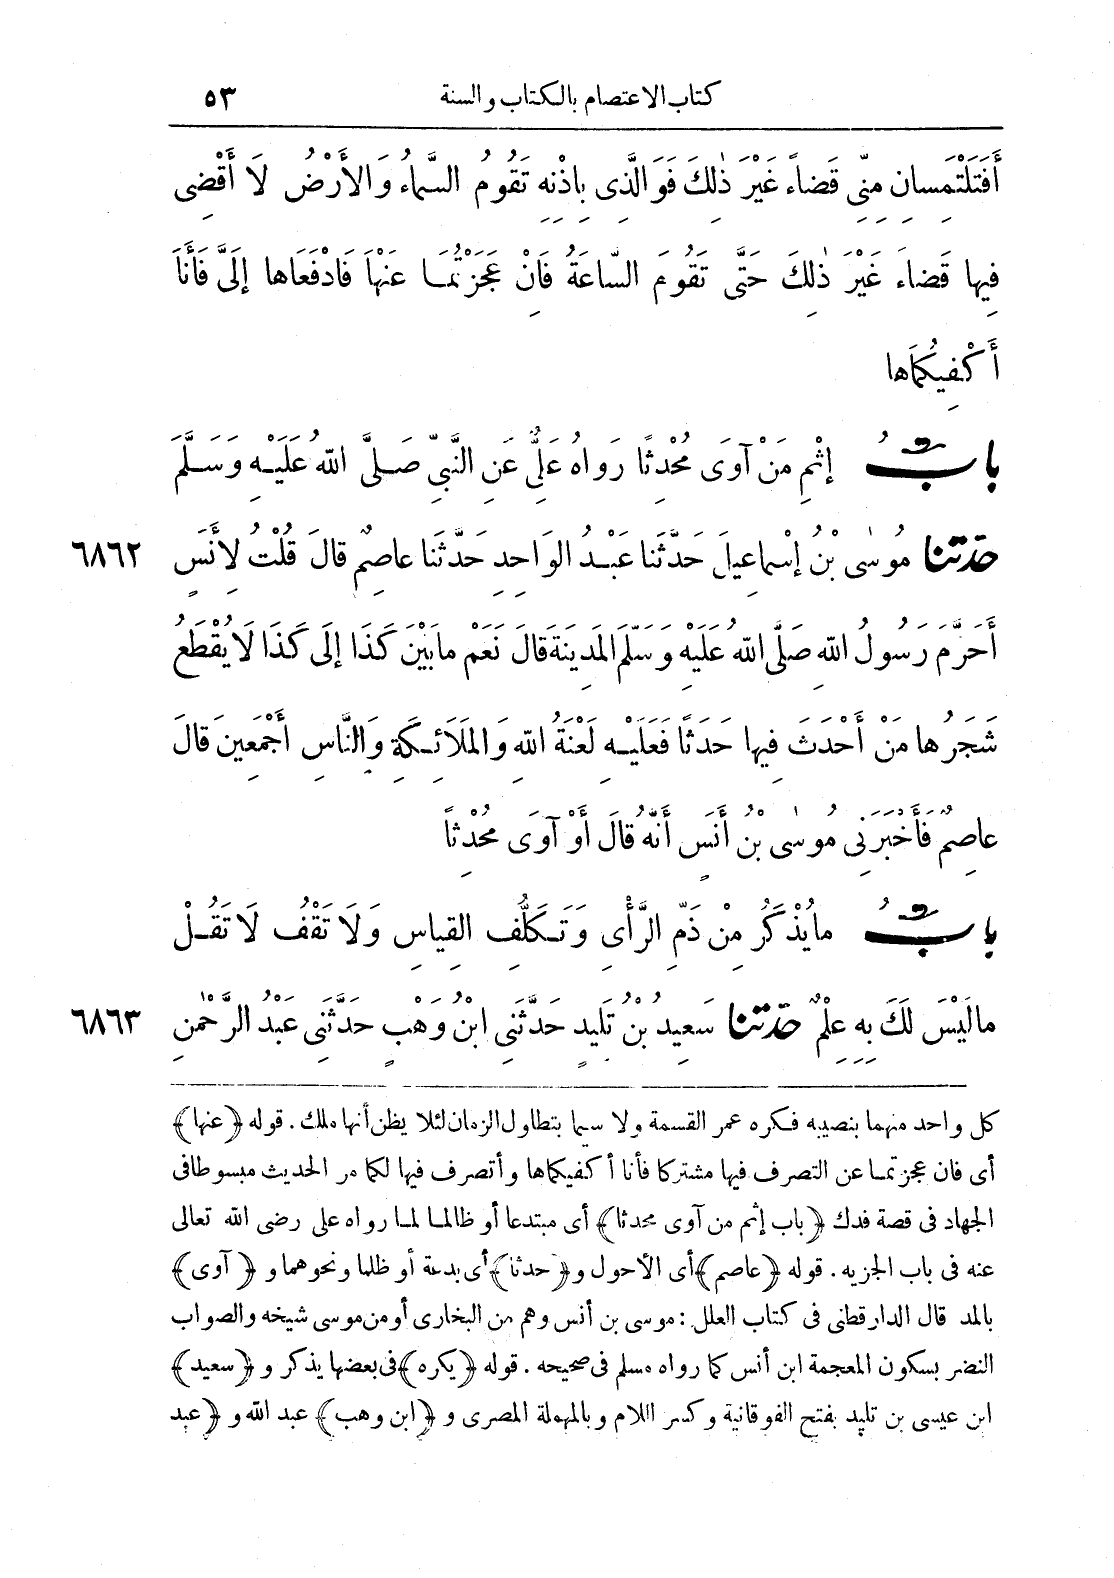 كتاب الاعتصام بالكتاب والسنة ٥٣
أَفَتَلْتَمِسانِ مِنِّى قَضاءً غَيْرَ ذٰلِكَ فَوَالَّذِى بِاذْنِهِ تَقُومُ السَّماءُ وَالأَرْضُ لَا أَقْضِى
فِيها قَضاءَ غَيْرَ ذٰلِكَ حَتَّى تَقُومَ السّاعَةُ فَانْ عَجَزْتُمَا عَنْهَا فَادْفَعَاها إلَىَّ فَأَنَا
أَكْفِيكُمَاها
بابُ إثْمِ مَنْ آوَى مُحْدِثًا رَواهُ عَلِىٌّ عَنِ النَّبِىِّ صَلَّى اللهُ عَلَيْهِ وَسَلَّمَ
٦٨٦٢ حدّثنا مُوسٰى بْنُ إسْماعِيلَ حَدَّثَنا عَبْدُ الوَاحِدِ حَدَّثَنا عاصِمٌ قالَ قُلْتُ لِأَنَسٍ
أَحَرَّمَ رَسُولُ اللهِ صَلَّى اللهُ عَلَيْهِ وَسَلّمَ المَدِينَةَ قالَ نَعَمْ مابَيْنَ كَذَا إلَى كَذَا لَا يُقْطَعُ
شَجَرُها مَنْ أَحْدَثَ فِيها حَدَثًا فَعَلَيْهِ لَعْنَةُ اللهِ وَالمَلَائِكَةِ وَالنَّاسِ أَجْمَعِينَ قالَ
عاصِمٌ فَأَخْبَرَنِى مُوسٰى بْنُ أَنَسٍ أَنَّهُ قالَ أَوْ آوَى مُحْدِثاً
بابُ مايُذْكَرُ مِنْ ذَمِّ الرَّأْىِ وَتَكَلُّفِ القِياسِ وَلَا تَقْفُ لَا تَقُلْ
٦٨٦٣ مالَيْسَ لَكَ بِهِ عِلْمٌ حدّثنا سَعِيدُ بْنُ تَلِيدٍ حَدَّثَنِى ابْنُ وَهْبٍ حَدَّثَنِى عَبْدُ الرَّحْمٰنِ
كل واحد منهما بنصيبه فكره عمر القسمة ولا سيما بتطاول الزمان لئلا يظن أنها ملك. قوله ﴿عنها﴾
أى فان عجزتما عن التصرف فيها مشتركا فأنا أكفيكماها وأتصرف فيها لكما مر الحديث مبسوطا فى
الجهاد فى قصة فدك ﴿باب إثم من آوى محدثا﴾ أى مبتدعا أو ظالما لما رواه على رضى الله تعالى
عنه فى باب الجزيه. قوله ﴿عاصم﴾ أى الأحول و﴿حدثا﴾ أى بدعة أو ظلما ونحوهما و ﴿آوى﴾
بالمد قال الدارقطنى فى كتاب العلل: موسى بن أنس وهم من البخارى أو من موسى شيخه والصواب
النضر بسكون المعجمة ابن أنس كما رواه مسلم فى صحيحه. قوله ﴿يكره﴾ فى بعضها يذكر و ﴿سعيد﴾
ابن عيسى بن تليد بفتح الفوقانية وكسر اللام وبالمهملة المصرى و ﴿ابن وهب﴾ عبد الله و ﴿عبد